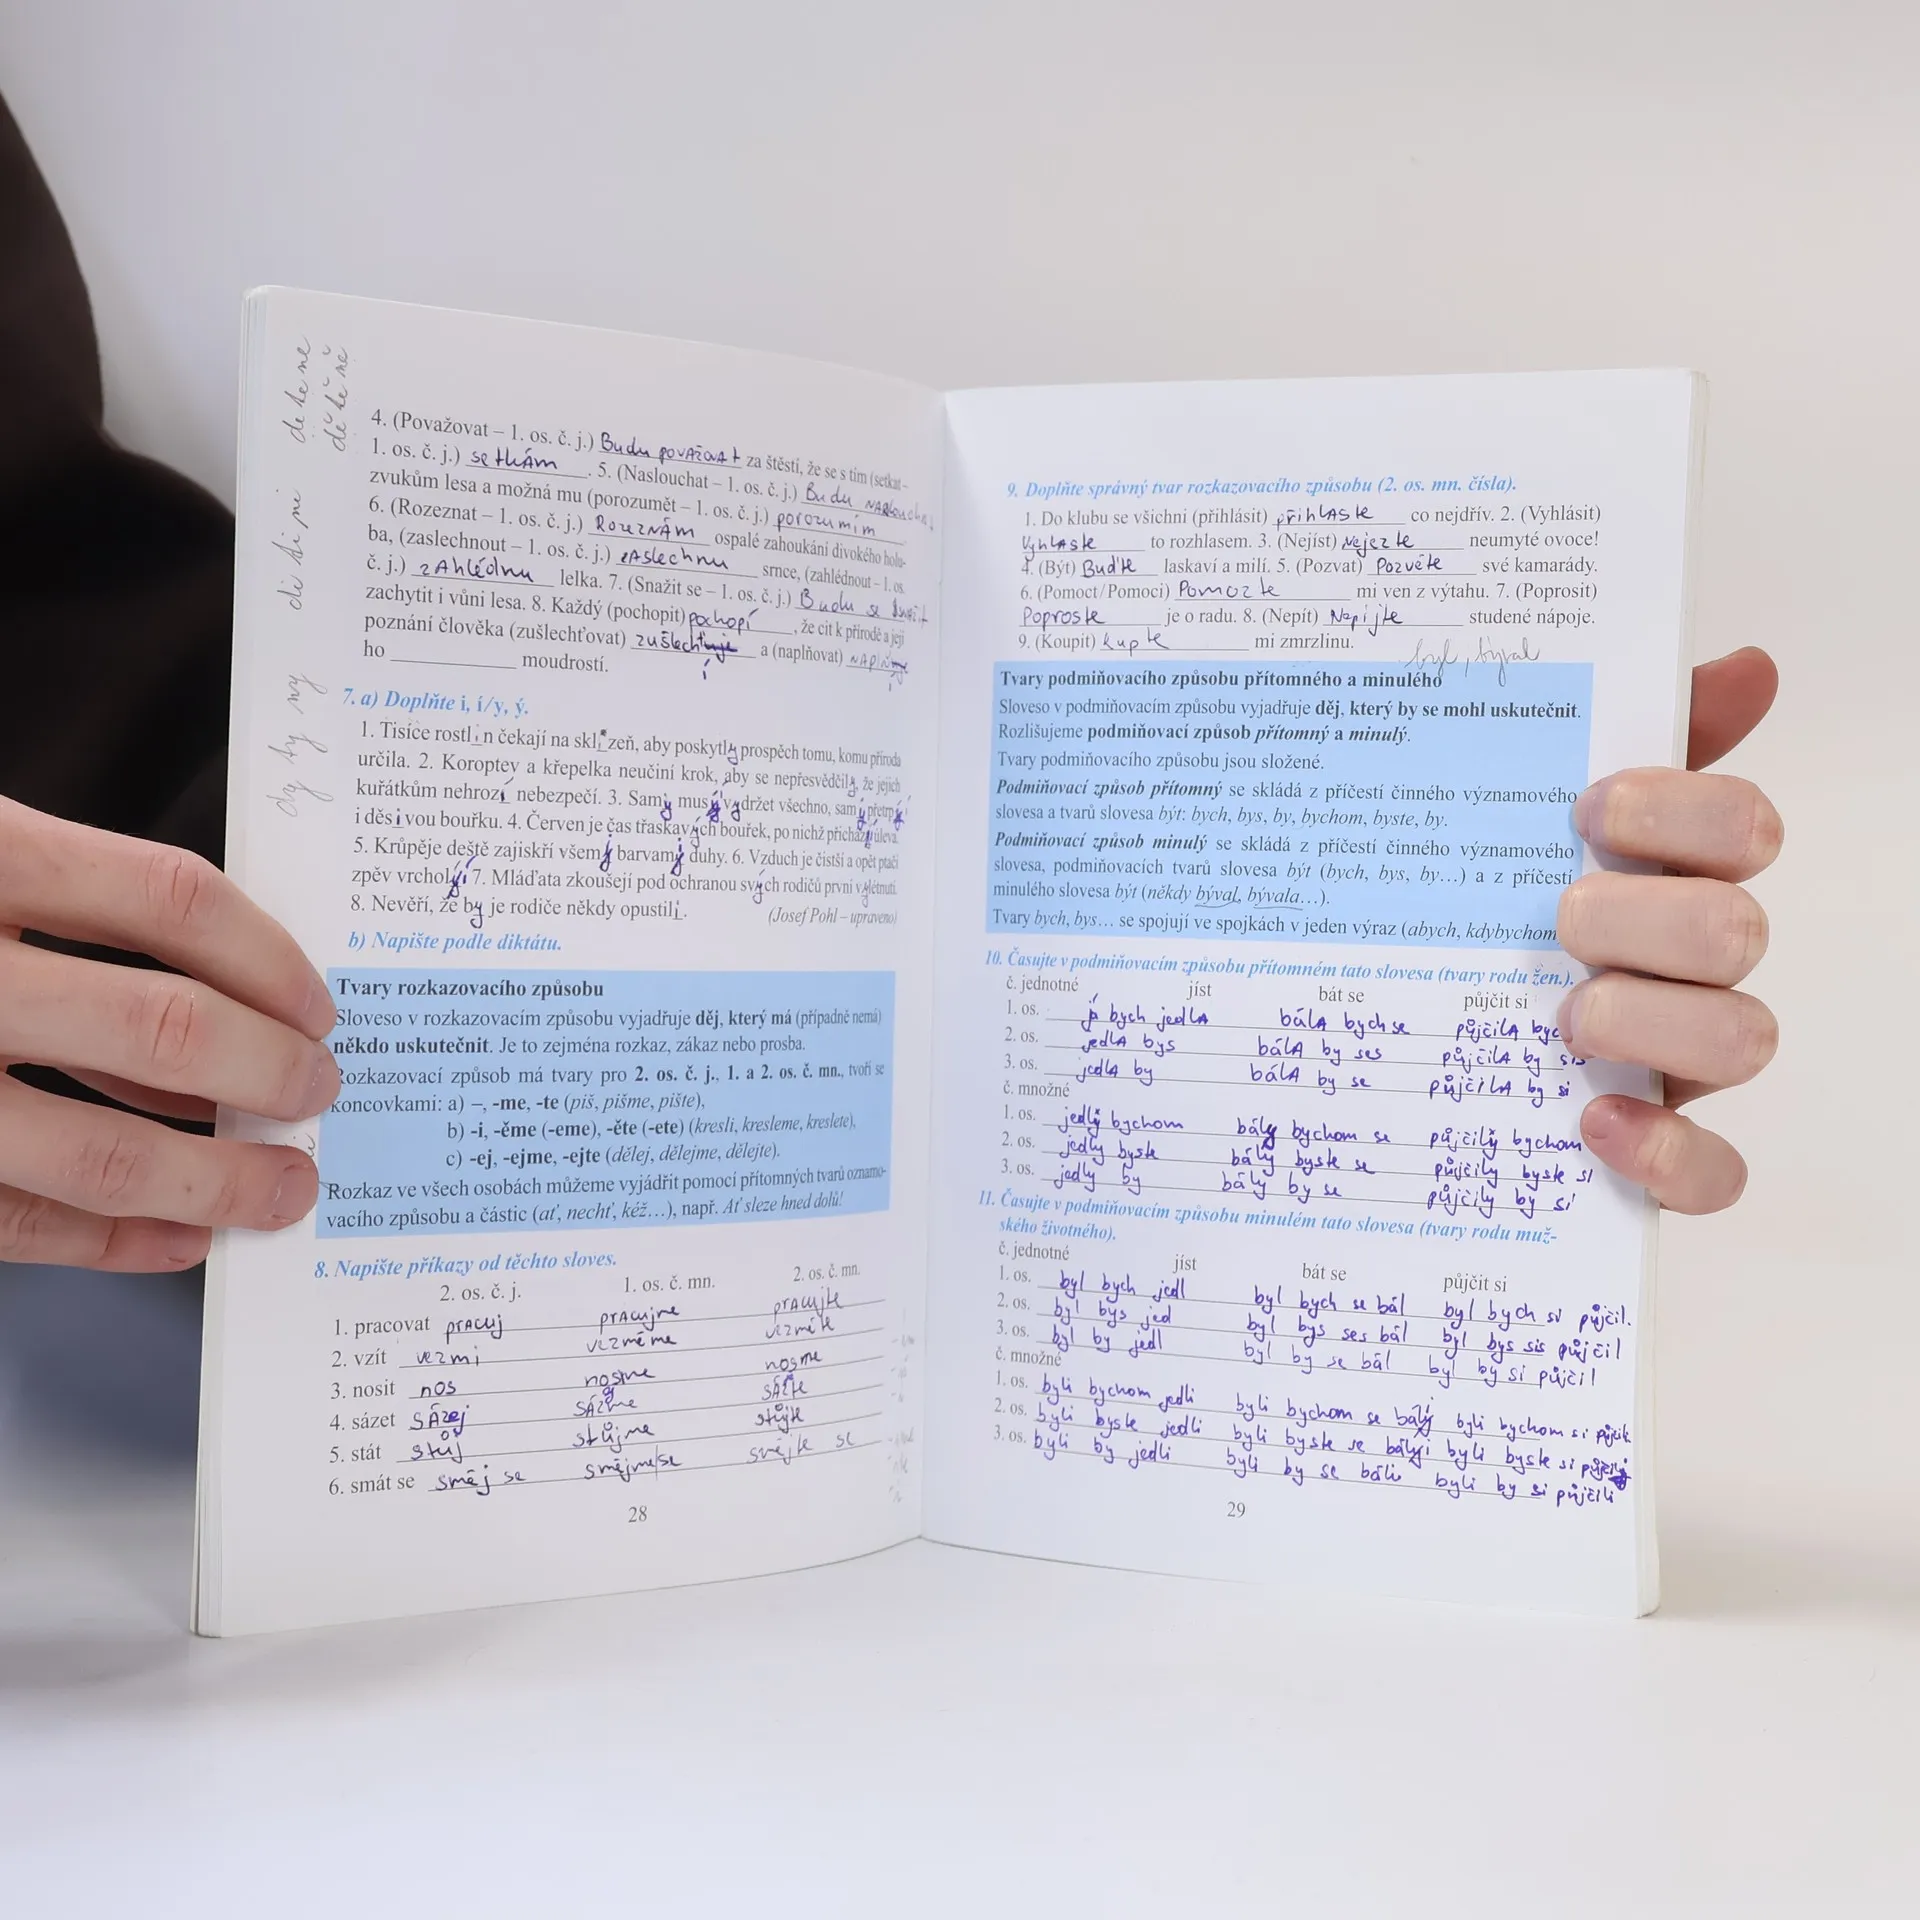 de te ne
dě tě ně
di ti ni
dy ty ny
4. (Považovat – 1. os. č. j.) Budu považovat za štěstí, že se s tím (setkat –
1. os. č. j.) setkám. 5. (Naslouchat – 1. os. č. j.) Budu
zvukům lesa a možná mu (porozumět – 1. os. č. j.) porozumím
6. (Rozeznat – 1. os. č. j.) Rozeznám ospalé zahoukání divokého holu-
ba, (zaslechnout – 1. os. č. j.) zaslechnu srnce, (zahlédnout – 1. os.
č. j.) zahlédnu lelka. 7. (Snažit se – 1. os. č. j.) Budu se snažit
zachytit i vůni lesa. 8. Každý (pochopit) pochopí, že cit k přírodě a její
poznání člověka (zušlechťovat) zušlechťuje a (naplňovat)
ho ______ moudrostí.
7. a) Doplňte i, í/y, ý.
1. Tisíce rostlin čekají na sklizeň, aby poskytly prospěch tomu, komu příroda
určila. 2. Koroptev a křepelka neučiní krok, aby se nepřesvědčily, že jejich
kuřátkům nehrozí nebezpečí. 3. Samy musí vydržet všechno, samy přetrpí
i děsivou bouřku. 4. Červen je čas třaskavých bouřek, po nichž přichází úleva.
5. Krůpěje deště zajiskří všemi barvami duhy. 6. Vzduch je čistší a opět ptačí
zpěv vrcholí. 7. Mláďata zkoušejí pod ochranou svých rodičů první vylétnutí.
8. Nevěří, že by je rodiče někdy opustili. (Josef Pohl – upraveno)
b) Napište podle diktátu.
Tvary rozkazovacího způsobu
Sloveso v rozkazovacím způsobu vyjadřuje děj, který má (případně nemá)
někdo uskutečnit. Je to zejména rozkaz, zákaz nebo prosba.
Rozkazovací způsob má tvary pro 2. os. č. j., 1. a 2. os. č. mn., tvoří se
koncovkami: a) –, -me, -te (piš, pišme, pište),
b) -i, -ěme (-eme), -ěte (-ete) (kresli, kresleme, kreslete),
c) -ej, -ejme, -ejte (dělej, dělejme, dělejte).
Rozkaz ve všech osobách můžeme vyjádřit pomocí přítomných tvarů oznamo-
vacího způsobu a částic (ať, nechť, kéž…), např. Ať sleze hned dolů!
8. Napište příkazy od těchto sloves.
2. os. č. j. 1. os. č. mn. 2. os. č. mn.
1. pracovat pracuj pracujme pracujte
2. vzít vezmi vezměme vezměte
3. nosit nos nosme nosme
4. sázet sázej sázme sázte
5. stát stůj stůjme stůjte
6. smát se směj se smějme se smějte se
28
9. Doplňte správný tvar rozkazovacího způsobu (2. os. mn. čísla).
1. Do klubu se všichni (přihlásit) přihlaste co nejdřív. 2. (Vyhlásit)
Vyhlaste to rozhlasem. 3. (Nejíst) Nejezte neumyté ovoce!
4. (Být) Buďte laskaví a milí. 5. (Pozvat) Pozvěte své kamarády.
6. (Pomoct/Pomoci) Pomozte mi ven z výtahu. 7. (Poprosit)
Poproste je o radu. 8. (Nepít) Nepijte studené nápoje.
9. (Koupit) kupte mi zmrzlinu.
byl, býval
Tvary podmiňovacího způsobu přítomného a minulého
Sloveso v podmiňovacím způsobu vyjadřuje děj, který by se mohl uskutečnit.
Rozlišujeme podmiňovací způsob přítomný a minulý.
Tvary podmiňovacího způsobu jsou složené.
Podmiňovací způsob přítomný se skládá z příčestí činného významového
slovesa a tvarů slovesa být: bych, bys, by, bychom, byste, by.
Podmiňovací způsob minulý se skládá z příčestí činného významového
slovesa, podmiňovacích tvarů slovesa být (bych, bys, by…) a z příčestí
minulého slovesa být (někdy býval, bývala…).
Tvary bych, bys… se spojují ve spojkách v jeden výraz (abych, kdybychom
10. Časujte v podmiňovacím způsobu přítomném tato slovesa (tvary rodu žen.).
č. jednotné jíst bát se půjčit si
1. os. bych jedla bála bych se půjčila byc
2. os. jedla bys bála by ses půjčila by sis
3. os. jedla by bála by se půjčila by si
č. množné
1. os. jedly bychom bály bychom se půjčily bychom
2. os. jedly byste bály byste se půjčily byste si
3. os. jedly by bály by se půjčily by si
11. Časujte v podmiňovacím způsobu minulém tato slovesa (tvary rodu muž-
ského životného).
č. jednotné jíst bát se půjčit si
1. os. byl bych jedl byl bych se bál byl bych si půjčil.
2. os. byl bys jed byl bys ses bál byl bys sis půjčil
3. os. byl by jedl byl by se bál byl by si půjčil
č. množné
1. os. byli bychom jedli byli bychom se báli byli bychom si
2. os. byli byste jedli byli byste se báli byli byste si půjčili
3. os. byli by jedli byli by se báli byli by si půjčili
29